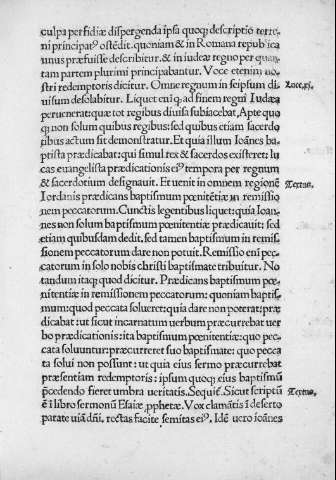 culpa perfidiæ dispergenda ipsa quoq; descriptio terre-
ni principat⁹ ostēdit. quoniam & in Romana republica
unus præfuisse describitur. & in iudeæ regno per quar-
tam partem plurimi principabantur. Voce etenim no-
stri redemptoris dicitur. Omne regnum in seipsum di-
uisum desolabitur. Liquet eni q; ad finem regni Iudæa
peruenerat: quæ tot regibus diuisa subiacebat. Apte quo
q; non solum quibus regibus: sed quibus etiam sacerdo
tibus actum sit demonstratur. Et quia illum Ioānes ba-
ptista prædicabat: qui simul rex & sacerdos existeret: lu
cas euangelista prædicationis ei⁹ tempora per regnum
& sacerdotium designauit. Et uenit in omnem regionē
Iordanis prædicans baptismum pœnitētiæ in remissio
nem peccatorum. Cunctis legentibus liquet: quia Ioan-
nes non solum baptismum pœnitentiæ prædicauit: sed
etiam quibusdam dedit. sed tamen baptismum in remis-
sionem peccatorum dare non potuit. Remissio eni pec-
catorum in solo nobis christi baptismate tribuitur. No
tandum itaq; quod dicitur. Prædicans baptismum pœ-
nitentiæ in remissionem peccatorum: quoniam baptis-
mum: quod peccata solueret: quia dare non poterat: præ
dicabat: ut sicut incarnatum uerbum præcurrebat uer
bo prædicationis: ita baptismum pœnitentiæ: quo pec-
cata soluuntur: præcurreret suo baptismate: quo pecca
ta solui non possunt: ut quia eius sermo præcurrebat
præsentiam redemptoris: ipsum quoq; eius baptismū
p̄cedendo fieret umbra ueritatis. Sequit͛. Sicut scriptū
ē ī libro sermonū Esaiæ p̄phetæ. Vox clamātis ī deserto
parate uiā dñi. rectas facite semitas ei⁹. Idē uero ioānes
Luce. xj.
Textus.
Textus.